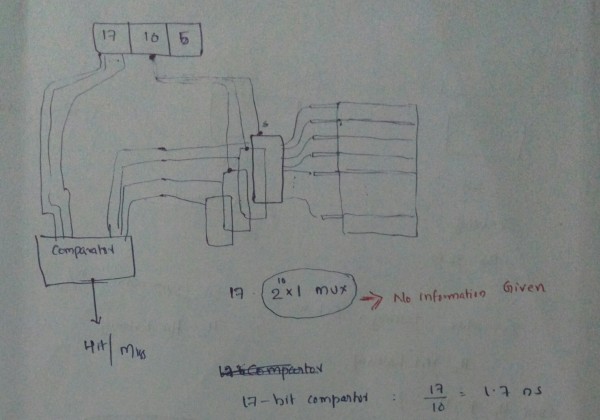 17 10 5
Comparator
Hit/Miss
17: 2^10 x 1 mux → No Information Given
17-bit compartor : 17/10 = 1.7 ns